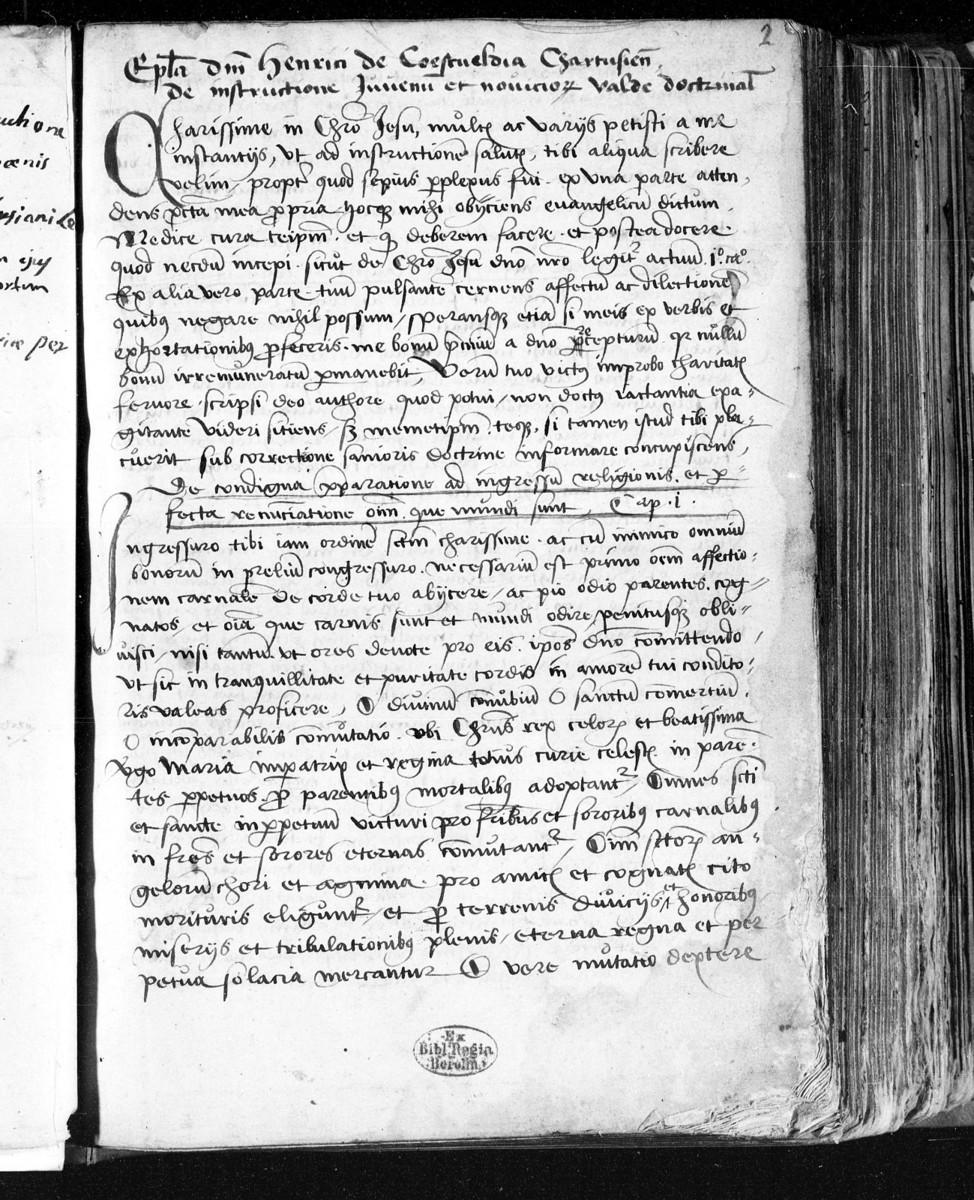 2
Epła dm̄ Henrici de Coesfueldia Chartusieñ.
De instructione Juvenū et noviciorꝝ valde doctrinal
Charissime in Chr̄o Jesu, mult̄ ac varijs petisti a me
instantijs, ut ad instructionē salut̄, tibi aliqua scribere
velim, propt̄ quod sepius ꝑplexus fui. ex una parte atten-
dens pctā mea ꝓpria hocqꝫ mihi obijciens evangelicū dictum
Medice cura teipm̄. et qͥ deberem facere. et postea docere
quod necdū incepi. sicut de Chr̄o Jesu dn̄o nr̄o legit̄ actuū .1º. caº.
Ex alia vero parte tuū pulsantē cernens affectū ac dilectionē
quibus negare nihil possum, speransqꝫ etiā si meis ex verbis et
exhortationibus ꝓfeceris. me bonū p̄miū a dn̄o ꝑcepturū qr nullū
bonū irremuneratū ꝑmanebit, Verū tuo victus improbo charitat̄
fervore. scripsi deo authore quod potui, non doctus iactantia exa-
gitante videri sitiens, sꝫ memetipm̄ teqꝫ, si tamen istud tibi pla-
cuerit sub correctione sanioris doctrine informare concupiscens,
De condigna p̄paratione ad ingressū religionis. et ꝑ-
fecta renūciatione oīm. que mundi sunt, Cap .1.
Ingressuro tibi iam ordinē sctm̄ charissime. ac cū inimico omniū
bonorū in preliū congressuro. necessariū est primo oēm affectio-
nem carnalē de corde tuo abijcere, ac pio odio parentes. cog-
natos, et oīa que carnis sunt et mundi odire, penitusqꝫ obli-
visci, nisi tantū ut ores devote pro eis. ip̄os dn̄o cōmittendo,
ut sic in tranquillitate et puritate cordis in amorē tui condito-
ris valeas proficere, O divinū conubiū O sanctū comertiū.
O incōparabilis cōmutatio. ubi Chrūs rex celorꝝ et beatissima
v̄go Maria imꝑatrix et regina totius curie celest̄ in parē-
tes ꝑpetuos. ꝓ parentibus mortalibus adoptant̄, Omnes scti
et sancte inꝑpetuū victuri pro fr̄ibus et sororibus carnalibus
in frēs et sorores eternas cōmutant̄, Oīm sctorꝝ an-
gelorū chori et agmina pro amic̄ et cognat̄ cito
morituris eligunt̄, et ꝓ terrenis divicijs et honoribus
miserijs et tribulationibus plenis, eterna regna et per
petua solacia mercantur O vere mutatio dextere
Ex
Bibl. Regia
Berolin.